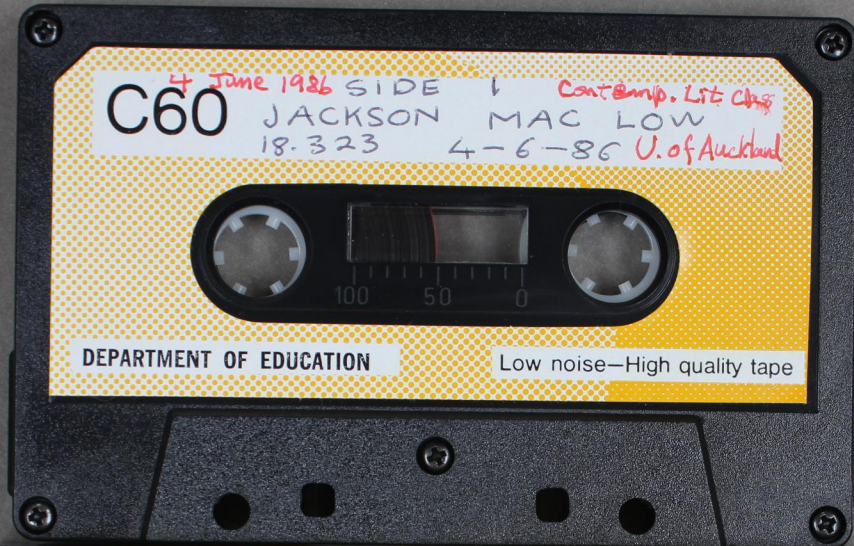 4 June 1986 SIDE 1 Contemp. Lit Class
C60 JACKSON MAC LOW
18.323 4-6-86 U. of Auckland
100 50 0
DEPARTMENT OF EDUCATION
Low noise—High quality tape